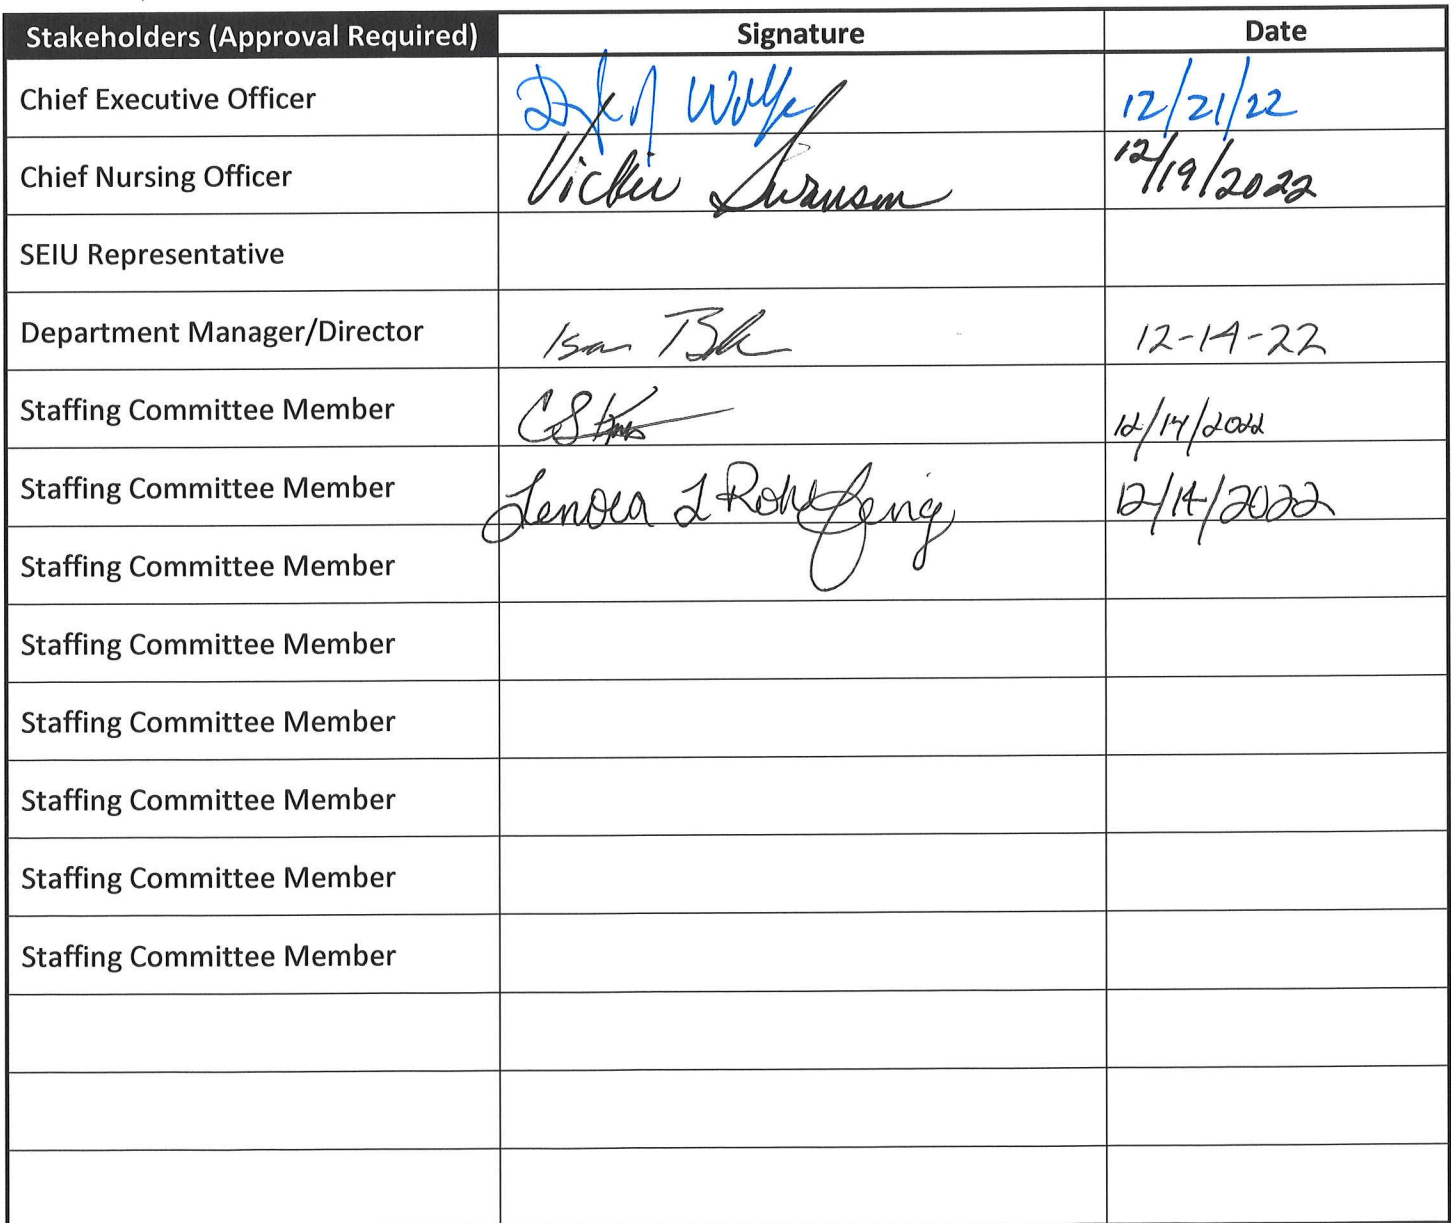 Stakeholders (Approval Required) Signature Date
Chief Executive Officer Wolfe 12/21/22
Chief Nursing Officer Vickie Swanson 12/19/2022
SEIU Representative
Department Manager/Director 12-14-22
Staffing Committee Member 12/14/2022
Staffing Committee Member Lenora L 12/14/2022
Staffing Committee Member
Staffing Committee Member
Staffing Committee Member
Staffing Committee Member
Staffing Committee Member
Staffing Committee Member